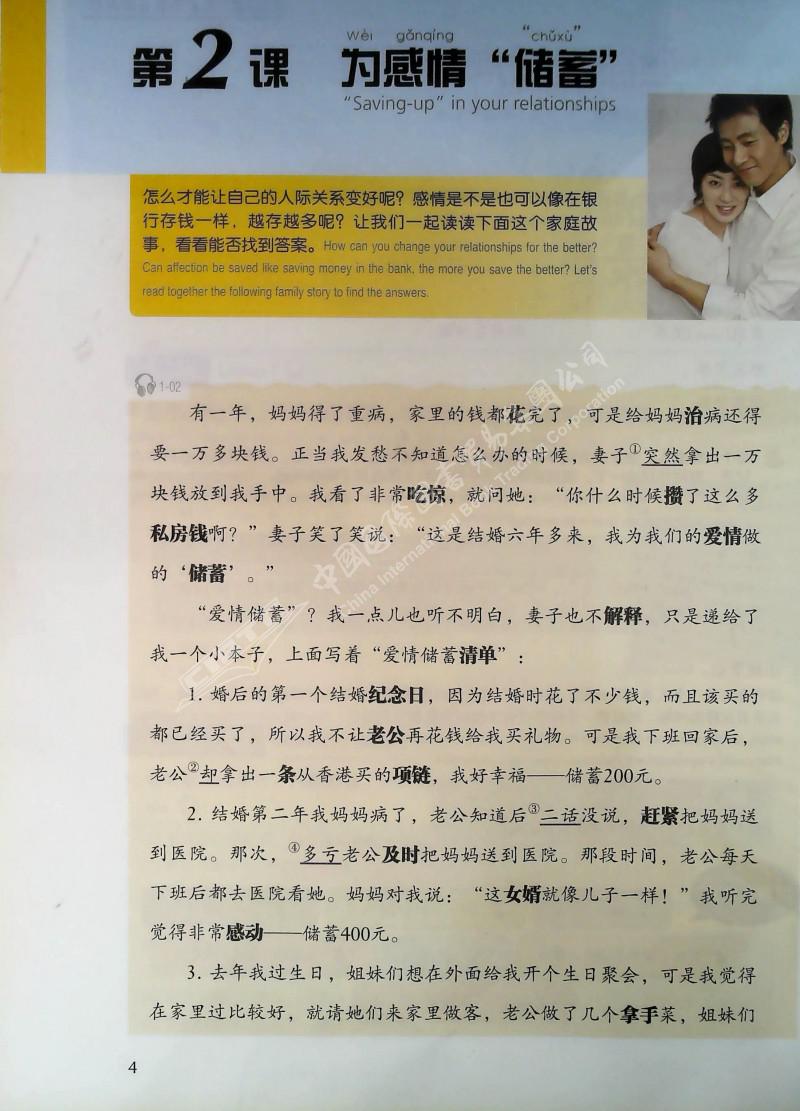 Wèi gǎnqíng "chǔxù"
第2课 为感情“储蓄”
“Saving-up” in your relationships
怎么才能让自己的人际关系变好呢？感情是不是也可以像在银
行存钱一样，越存越多呢？让我们一起读读下面这个家庭故
事，看看能否找到答案。How can you change your relationships for the better?
Can affection be saved like saving money in the bank, the more you save the better? Let's
read together the following family story to find the answers.
1-02
有一年，妈妈得了重病，家里的钱都花完了，可是给妈妈治病还得
要一万多块钱。正当我发愁不知道怎么办的时候，妻子①突然拿出一万
块钱放到我手中。我看了非常吃惊，就问她：“你什么时候攒了这么多
私房钱啊？”妻子笑了笑说：“这是结婚六年多来，我为我们的爱情做
的‘储蓄’。”
“爱情储蓄”？我一点儿也听不明白，妻子也不解释，只是递给了
我一个小本子，上面写着“爱情储蓄清单”：
1. 婚后的第一个结婚纪念日，因为结婚时花了不少钱，而且该买的
都已经买了，所以我不让老公再花钱给我买礼物。可是我下班回家后，
老公②却拿出一条从香港买的项链，我好幸福——储蓄200元。
2. 结婚第二年我妈妈病了，老公知道后③二话没说，赶紧把妈妈送
到医院。那次，④多亏老公及时把妈妈送到医院。那段时间，老公每天
下班后都去医院看她。妈妈对我说：“这女婿就像儿子一样！”我听完
觉得非常感动——储蓄400元。
3. 去年我过生日，姐妹们想在外面给我开个生日聚会，可是我觉得
在家里过比较好，就请她们来家里做客，老公做了几个拿手菜，姐妹们
4
中國国际圖書貿易集團公司
China International Book Trading Corporation